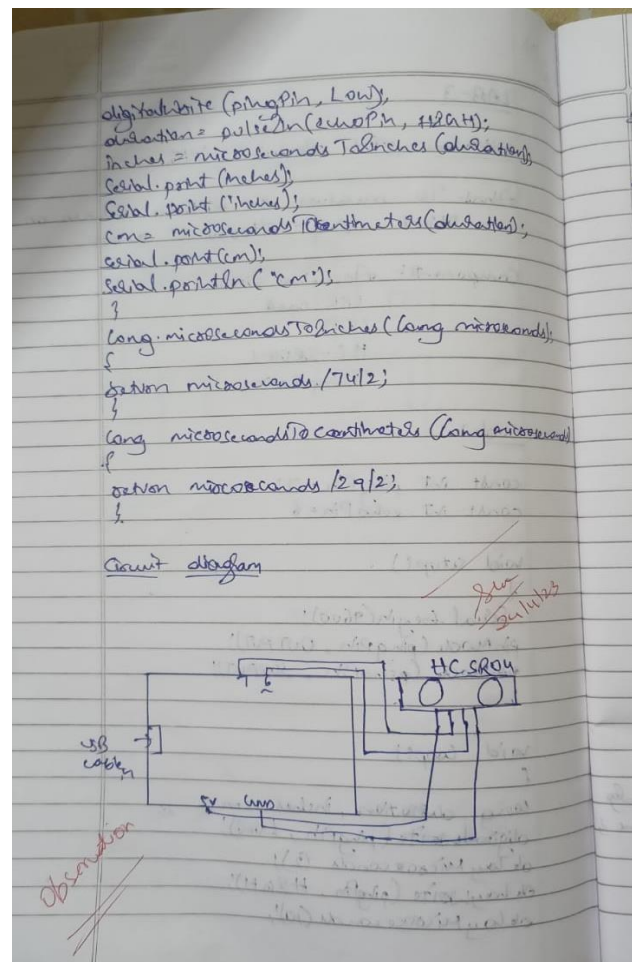 digitalwrite (pingPin, Low);
duration = pulseIn (echoPin, HIGH);
inches = microsecondsToInches (duration);
Serial.print (inches);
Serial.print ("inches);
cm = microsecondsToCentimeters (duration);
serial.print (cm);
Serial.println ("cm");
}
long.microsecondsToInches (long microseconds);
{
return microseconds /74/2;
}
long microsecondsTo (long microseconds
{
return /29/2;
}
Circuit diagram
24/11/23
HC SR04
7 6
USB
cable
5V GND
Observation